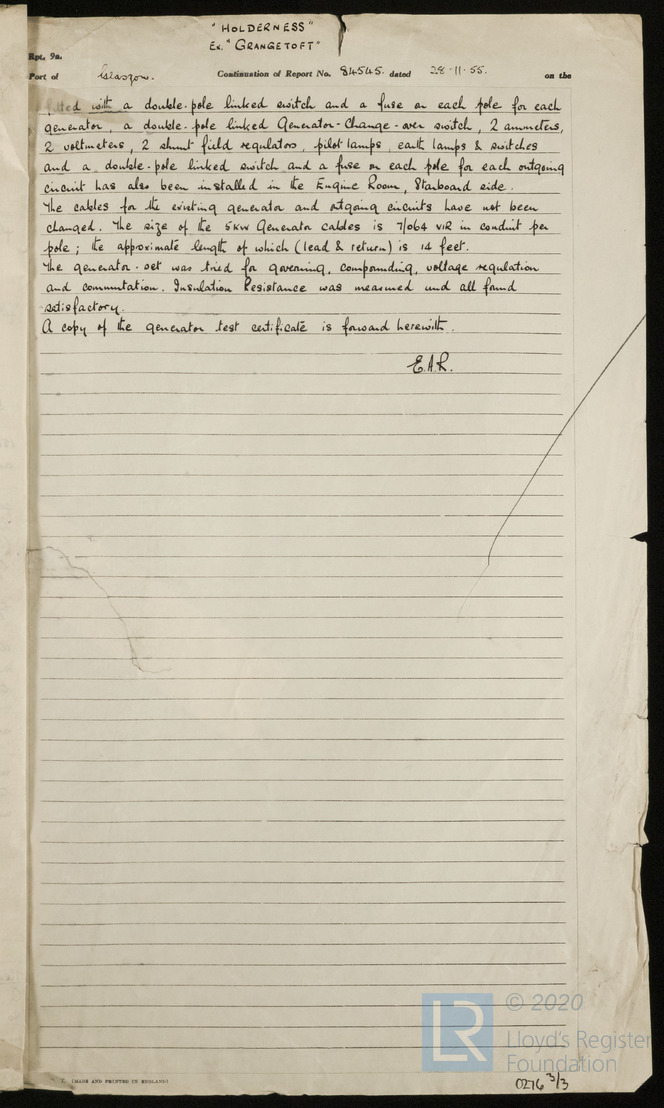 "HOLDERNESS"
Ex. "GRANGETOFT"
Rpt. 9a.
Port of Glasgow. Continuation of Report No. 84545 dated 28·11·55. on the
with a double-pole linked switch and a fuse on each pole for each
generator, a double-pole linked Generator-Change-over switch, 2 ammeters,
2 voltmeters, 2 shunt field regulators, pilot lamps, earth lamps & switches
and a double-pole linked switch and a fuse on each pole for each outgoing
circuit has also been installed in the Engine Room, Starboard side.
The cables for the existing generator and outgoing circuits have not been
changed. The size of the 5KW Generator cables is 7/064 VIR in conduit per
pole; the approximate length of which (lead & return) is 14 feet.
The generator-set was tried for governing, compounding, voltage regulation
and commutation. Insulation Resistance was measured and all found
satisfactory.
A copy of the generator test certificate is forward herewith.
E.A.R.
© 2020
LR
Lloyd's Register
Foundation
(MADE AND PRINTED IN ENGLAND)
0276 3/3